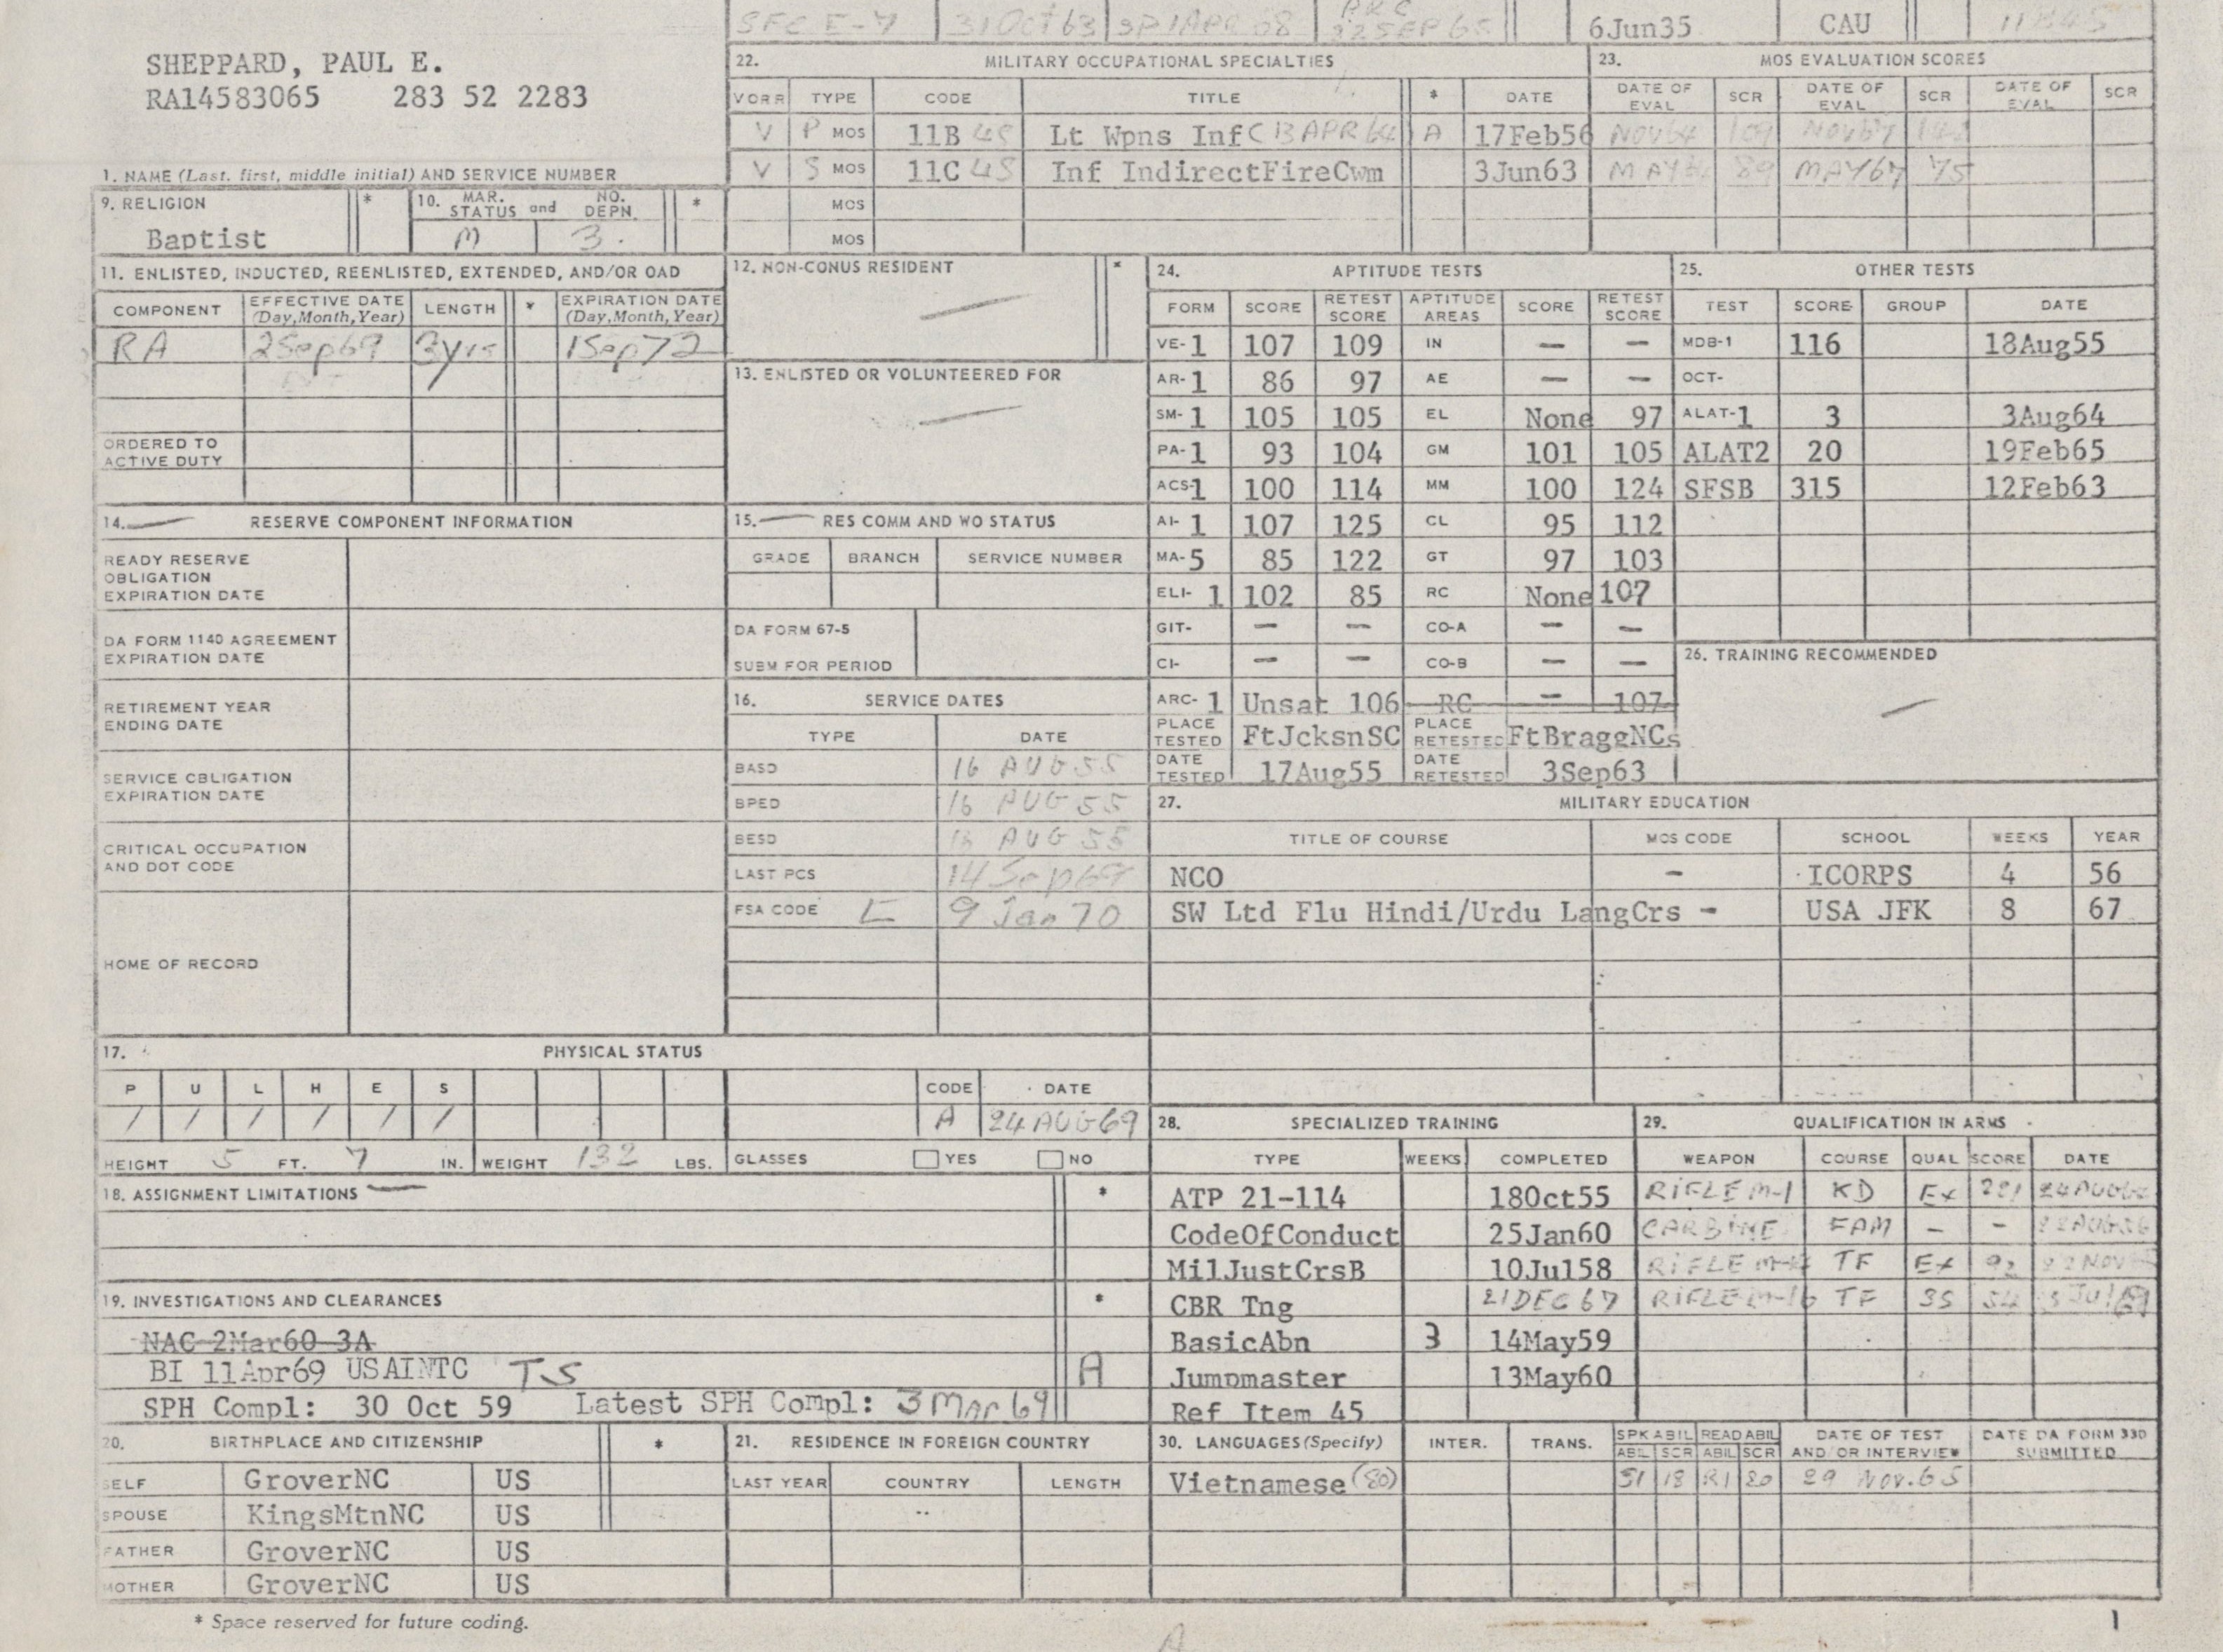 SFC E-7 31 Oct 63 SP 1 APR 68 6Jun35 CAU
SHEPPARD, PAUL E.
RA14583065 283 52 2283
1. NAME (Last, first, middle initial) AND SERVICE NUMBER
9. RELIGION * 10. MAR. STATUS and NO. DEPN. *
Baptist M 3.
11. ENLISTED, INDUCTED, REENLISTED, EXTENDED, AND/OR OAD
COMPONENT EFFECTIVE DATE (Day,Month,Year) LENGTH * EXPIRATION DATE (Day,Month,Year)
RA 2Sep69 3yrs 1Sep72
ORDERED TO ACTIVE DUTY
12. NON-CONUS RESIDENT *
—
13. ENLISTED OR VOLUNTEERED FOR
—
14. — RESERVE COMPONENT INFORMATION
READY RESERVE
OBLIGATION
EXPIRATION DATE
DA FORM 1140 AGREEMENT
EXPIRATION DATE
RETIREMENT YEAR
ENDING DATE
SERVICE OBLIGATION
EXPIRATION DATE
CRITICAL OCCUPATION
AND DOT CODE
HOME OF RECORD
15. — RES COMM AND WO STATUS
GRADE BRANCH SERVICE NUMBER
DA FORM 67-5
SUBM FOR PERIOD
16. SERVICE DATES
TYPE DATE
BASD 16 AUG 55
BPED 16 AUG 55
BESD 16 AUG 55
LAST PCS 14 Sep 69
FSA CODE L 9 Jan 70
17. PHYSICAL STATUS
P U L H E S CODE DATE
1 1 1 1 1 1 A 24 AUG 69
HEIGHT 5 FT. 7 IN. WEIGHT 132 LBS. GLASSES YES NO
18. ASSIGNMENT LIMITATIONS — *
19. INVESTIGATIONS AND CLEARANCES *
NAC 2Mar60 3A
BI 11Apr69 USAINTC TS A
SPH Compl: 30 Oct 59 Latest SPH Compl: 3 Mar 69
20. BIRTHPLACE AND CITIZENSHIP *
SELF GroverNC US
SPOUSE KingsMtnNC US
FATHER GroverNC US
MOTHER GroverNC US
21. RESIDENCE IN FOREIGN COUNTRY
LAST YEAR COUNTRY LENGTH
22. MILITARY OCCUPATIONAL SPECIALTIES
V OR R TYPE CODE TITLE * DATE
V P MOS 11B 4S Lt Wpns InfC 13 APR 64 A 17Feb56
V S MOS 11C 4S Inf IndirectFireCwm 3Jun63
MOS
MOS
23. MOS EVALUATION SCORES
DATE OF EVAL SCR DATE OF EVAL SCR DATE OF EVAL SCR
NOV 64 109 NOV 67
MAY 89 MAY 67 75
24. APTITUDE TESTS
FORM SCORE RETEST SCORE APTITUDE AREAS SCORE RETEST SCORE
VE-1 107 109 IN — —
AR-1 86 97 AE — —
SM-1 105 105 EL None 97
PA-1 93 104 GM 101 105
ACS-1 100 114 MM 100 124
AI-1 107 125 CL 95 112
MA-5 85 122 GT 97 103
ELI-1 102 85 RC None 107
GIT- — — CO-A — —
CI- — — CO-B — —
ARC-1 Unsat 106 RC — 107
PLACE TESTED FtJcksnSC PLACE RETESTED FtBraggNCs
DATE TESTED 17Aug55 DATE RETESTED 3Sep63
25. OTHER TESTS
TEST SCORE GROUP DATE
MDB-1 116 18Aug55
OCT-
ALAT-1 3 3Aug64
ALAT2 20 19Feb65
SFSB 315 12Feb63
26. TRAINING RECOMMENDED
—
27. MILITARY EDUCATION
TITLE OF COURSE MOS CODE SCHOOL WEEKS YEAR
NCO — ICORPS 4 56
SW Ltd Flu Hindi/Urdu LangCrs - USA JFK 8 67
28. SPECIALIZED TRAINING
TYPE WEEKS COMPLETED
ATP 21-114 18Oct55
CodeOfConduct 25Jan60
MilJustCrsB 10Jul58
CBR Tng 21 DEC 67
BasicAbn 3 14May59
Jumpmaster 13May60
Ref Item 45
29. QUALIFICATION IN ARMS
WEAPON COURSE QUAL SCORE DATE
RIFLE M-1 KD Ex
CARBINE FAM - -
RIFLE TF Ex 92 22 NOV
RIFLE M-16 TF SS 54 JUL 69
30. LANGUAGES (Specify) INTER. TRANS. SPK ABIL READ ABIL DATE OF TEST AND/OR INTERVIEW DATE DA FORM 330 SUBMITTED
ABIL SCR ABIL SCR
Vietnamese (80) S1 18 R1 20 29 Nov. 65
* Space reserved for future coding.
1
A